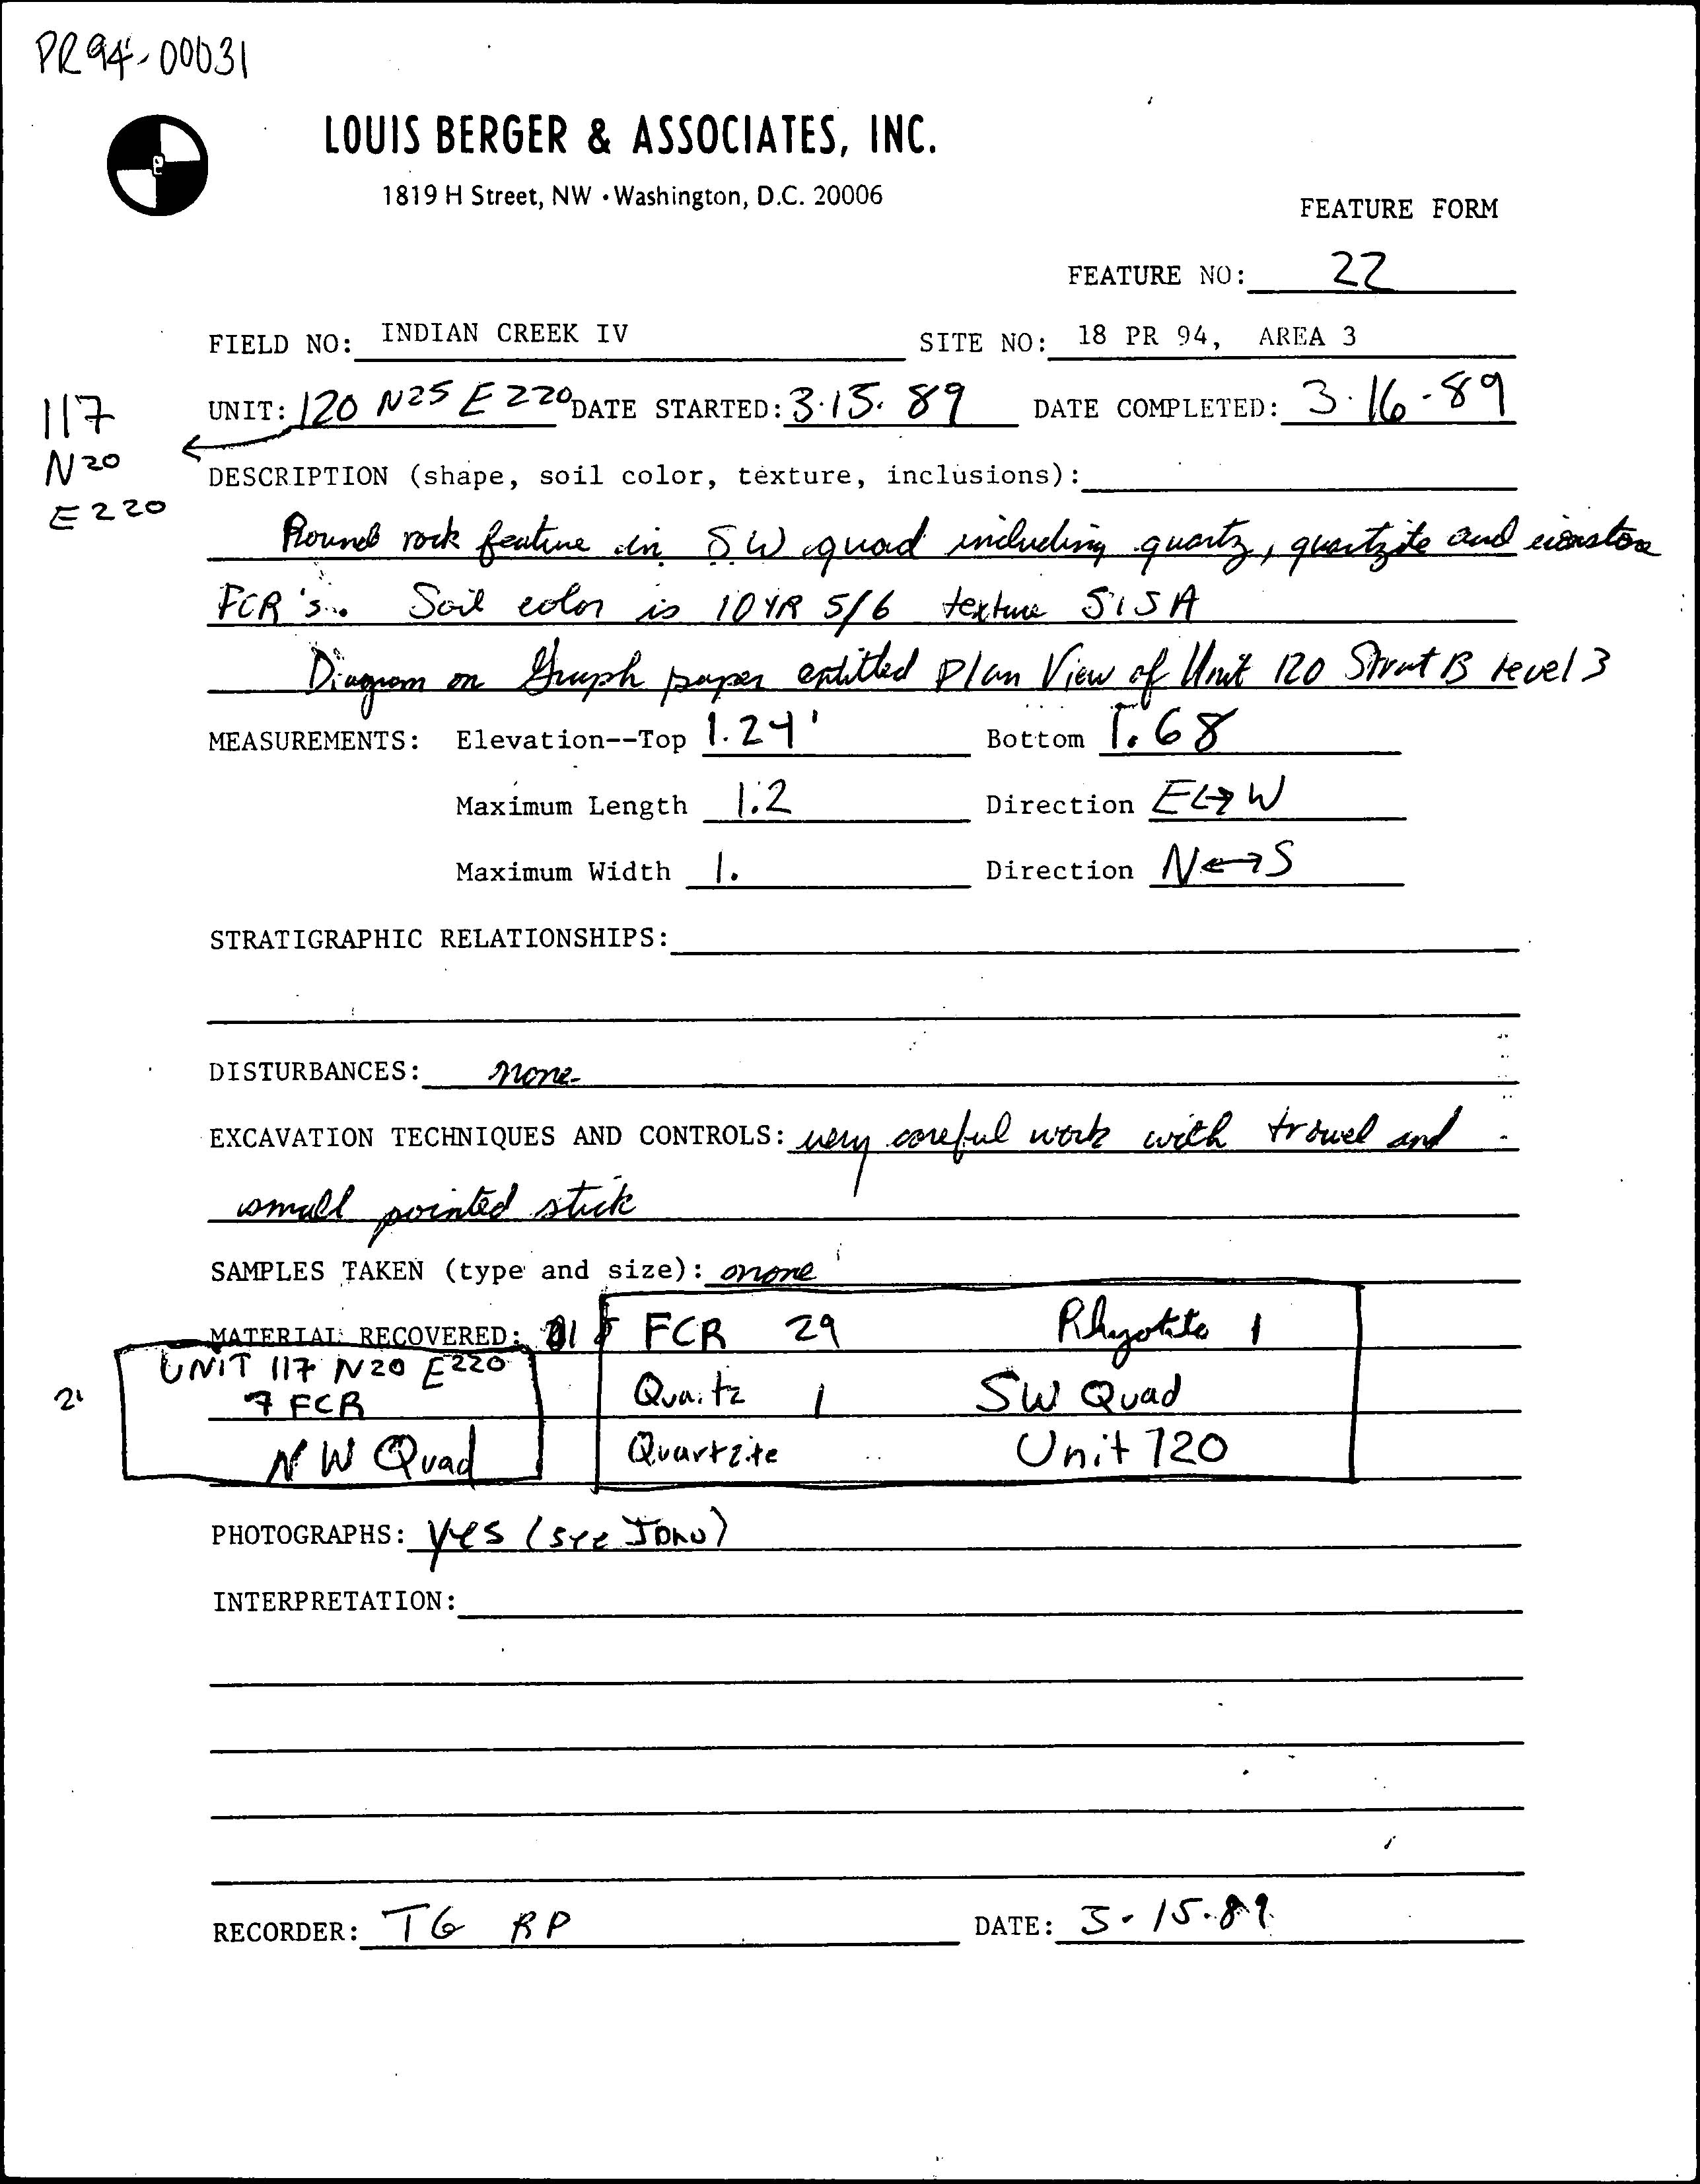 PR94-00031
LOUIS BERGER & ASSOCIATES, INC.
1819 H Street, NW · Washington, D.C. 20006
FEATURE FORM
FEATURE NO: 22
FIELD NO: INDIAN CREEK IV SITE NO: 18 PR 94, AREA 3
UNIT: 120 N25 E220 DATE STARTED: 3.15.89 DATE COMPLETED: 3.16-89
117
N20
E220
DESCRIPTION (shape, soil color, texture, inclusions):
Round rock feature in SW quad including quartz, quartzite and
FCR's. Soil color is 10YR 5/6 texture SiSA
Diagram on Graph paper entitled Plan View of Unit 120 Strat B level 3
MEASUREMENTS: Elevation--Top 1.24' Bottom 1.68
Maximum Length 1.2 Direction E↔W
Maximum Width 1. Direction N↔S
STRATIGRAPHIC RELATIONSHIPS:
DISTURBANCES: none
EXCAVATION TECHNIQUES AND CONTROLS: very careful work with trowel and
small pointed stick
SAMPLES TAKEN (type and size): none
MATERIAL RECOVERED: FCR 29 Rhyolite 1
UNIT 117 N20 E220
7 FCR
NW Quad
Quartz 1 SW Quad
Quartzite Unit 120
PHOTOGRAPHS: Yes (see John)
INTERPRETATION:
RECORDER: TG RP DATE: 3-15-89